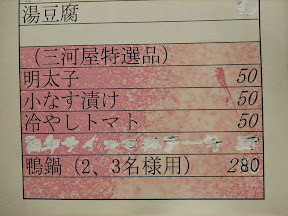 湯豆腐
（三河屋特選品）
明太子 50
小なす漬け 50
冷やしトマト 50
鴨鍋（2、3名様用） 280